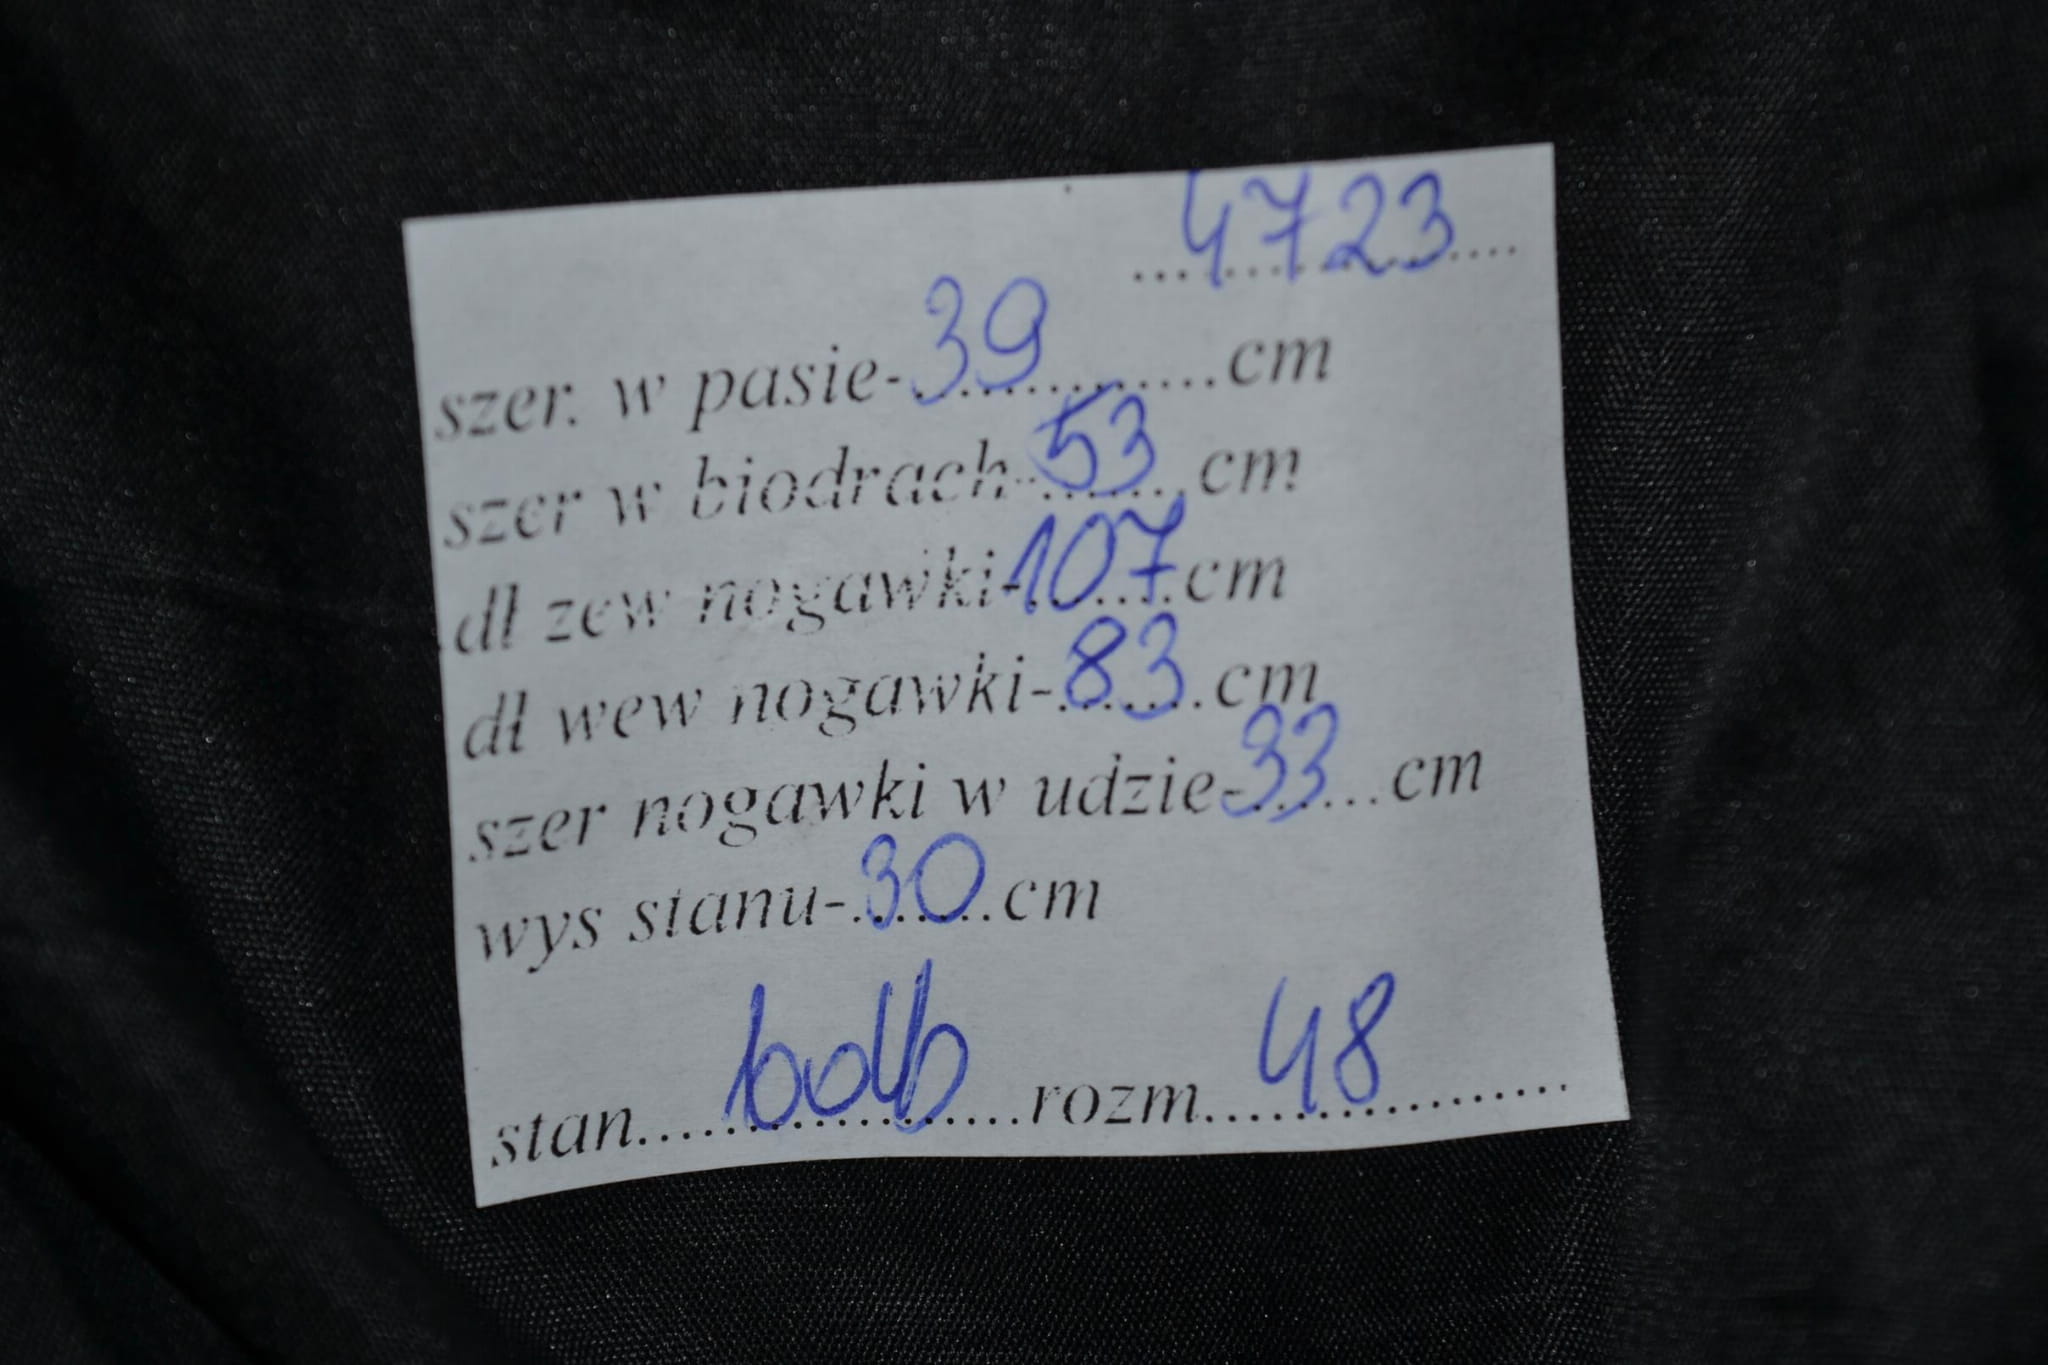 4723
szer. w pasie-39............cm
szer w biodrach-53.......cm
dł zew nogawki-107.......cm
dł wew nogawki-83.......cm
szer nogawki w udzie-33......cm
wys stanu-30.......cm
stan....bdb....rozm....48....